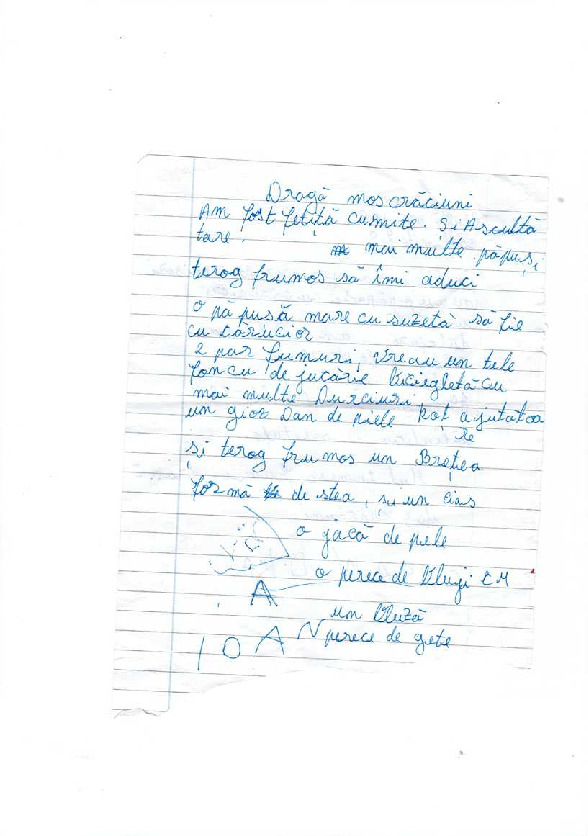 Dragă mos crăciuni
Am fost fetiță cusmite. Și Ascultă
tare. mai multe păpuș,
terog frumos să îmi aduci
o pă pusă mare cu suzetă să fie
cu cărucior
2 par fumuri, vreau un tele
fon cu de jucărie bicicletă cu
mai multe Durciuri
un gios Dan de piele Rot ajutatoa
re
și terog frumos un Brețea
formă de stea, și un cias
o jacă de piele
o perece de Blugi EM
A
un Bluză
perece de gete
IOAN